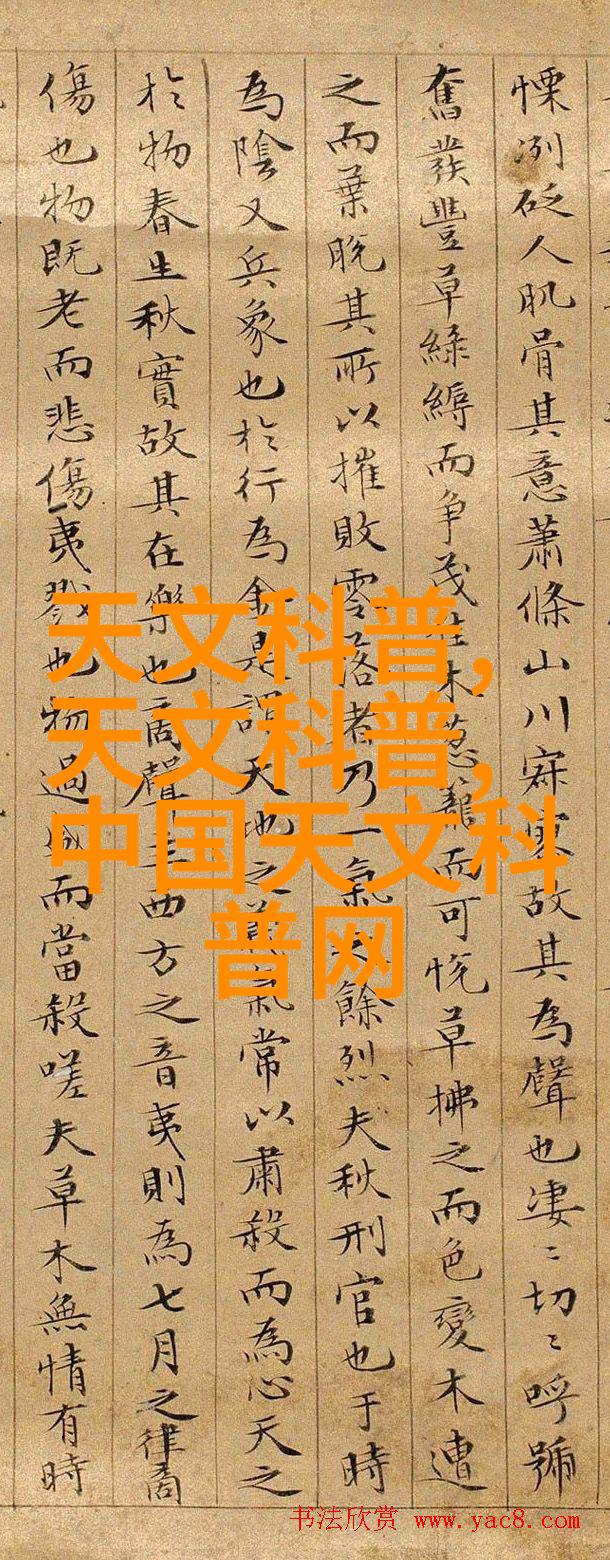 慄冽砭人肌骨其意蕭條山川寂寥故其為聲也淒〻切〻呼號
奮發豐草綠縟而爭茂佳木葱蘢而可悅草拂之而色變木遭
之而葉脫其所以摧敗零落者乃一氣之餘烈夫秋刑官也于時
為陰又兵象也於行為金是謂天地之義氣常以肅殺而為心天之
於物春生秋實故其在樂也商聲主西方之音夷則為七月之律商
傷也物既老而悲傷夷戮也物過盛而當殺嗟夫草木無情有時
天文科普,
天文科普,
中国天文科
普网
书法欣赏 www.yac8.com